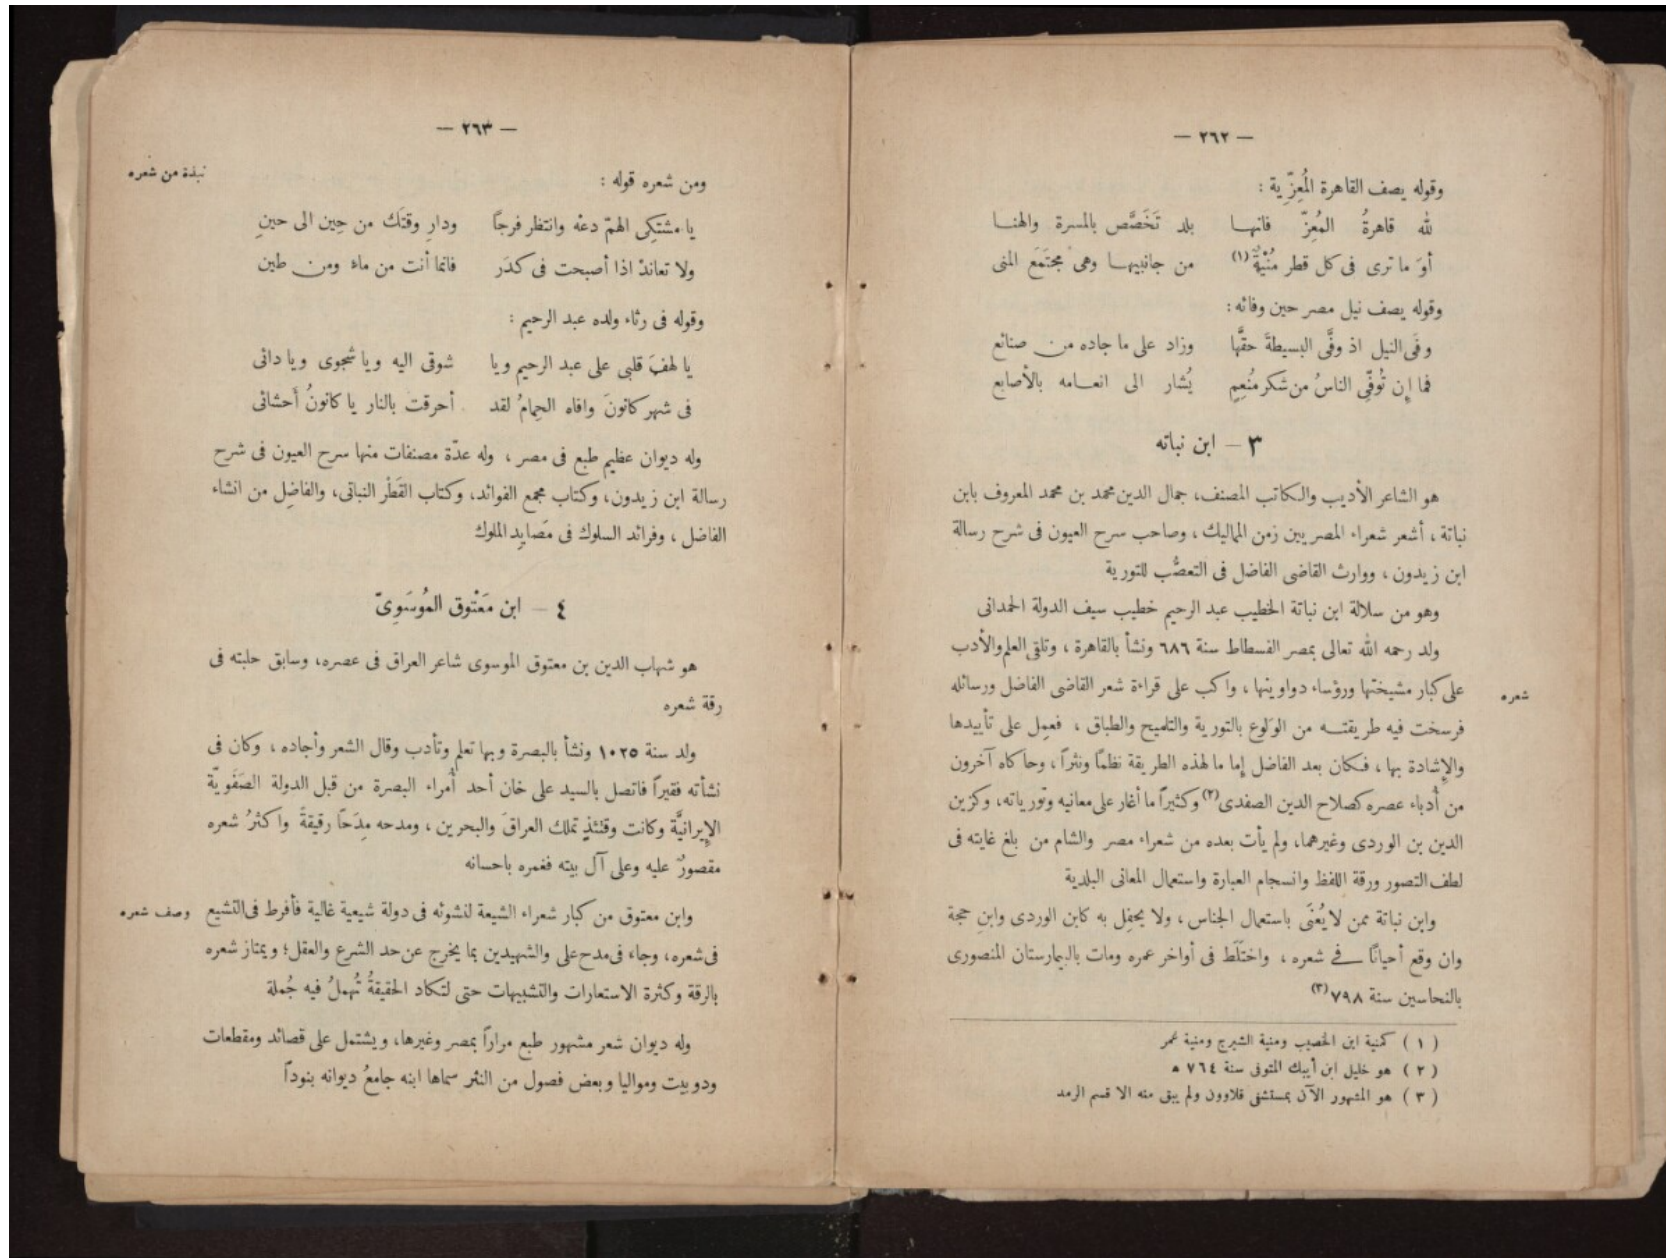 — ٢٦٢ —
وقوله يصف القاهرة المُعِزِّية :
لله قاهرةُ المُعِزّ فانهـا بلد تَخَصَّص بالمسرة والهنـا
أوَ ما ترى فى كل قطر مُنْيةٌ (١) من جانبيهـا وهى مجتَمَع المنى
وقوله يصف نيل مصر حين وفائه :
وفَى النيل اذ وفَّى البسيطةَ حقَّها وزاد على ما جاده من صنائع
فما إِن تُوفِّى الناسُ من شكر مُنعِمٍ يُشار الى انعـامه بالأصابع
٣ — ابن نباته
هو الشاعر الأديب والكاتب المصنف، جمال الدين محمد بن محمد المعروف بابن
نباتة ، أشعر شعراء المصريين زمن المماليك ، وصاحب سرح العيون فى شرح رسالة
ابن زيدون ، ووارث القاضى الفاضل فى التعصُّب للتورية
وهو من سلالة ابن نباتة الخطيب عبد الرحيم خطيب سيف الدولة الحمدانى
ولد رحمه الله تعالى بمصر الفسطاط سنة ٦٨٦ ونشأ بالقاهرة ، وتلقى العلم والأدب
شعره
على كبار مشيختها ورؤساء دواوينها ، واكب على قراءة شعر القاضى الفاضل ورسائله
فرسخت فيه طريقتـه من الوَلوع بالتورية والتلميح والطباق ، فعمِل على تأييدها
والإِشادة بها ، فكان بعد الفاضل إِما ما لهذه الطريقة نظمًا ونثراً ، وحاكاه آخرون
من أُدباء عصره كصلاح الدين الصفدى(٢) وكثيراً ما أغار على معانيه وتورياته، وكزين
الدين بن الوردى وغيرهما، ولم يأت بعده من شعراء مصر والشام من بلغ غايته فى
لطف التصور ورقة اللفظ وانسجام العبارة واستعمال المعانى البلدية
وابن نباتة ممن لا يُعنَى باستعمال الجناس ، ولا يحفِل به كابن الوردى وابن حجة
وان وقع أحيانًا فى شعره ، واختَلَط فى أواخر عمره ومات بالبيمارستان المنصورى
بالنحاسين سنة ٧٩٨(٣)
( ١ ) كمنية ابن الخصيب ومنية الشيرج ومنية غمر
( ٢ ) هو خليل ابن أيبك المتوفى سنة ٧٦٤ هـ
( ٣ ) هو المشهور الآن بمستشفى قلاوون ولم يبق منه الا قسم الرمد
— ٢٦٣ —
نبذة من شعره
ومن شعره قوله :
يا مشتكِى الهمّ دعْه وانتظر فرجًا ودارِ وقتَك من حِين الى حينِ
ولا تعاندْ اذا أصبحت فى كدَر فانما أنت من ماء ومن طين
وقوله فى رثاء ولده عبد الرحيم :
يا لهفَ قلبى على عبد الرحيم ويا شوقى اليه ويا شجوى ويا دائى
فى شهر كانونَ وافاه الحِمامُ لقد أحرقت بالنار يا كانونُ أحشائى
وله ديوان عظيم طبع فى مصر ، وله عدّة مصنفات منها سرح العيون فى شرح
رسالة ابن زيدون، وكتاب مجمع الفوائد، وكتاب القَطْر النباتى، والفاضِل من انشاء
الفاضل ، وفرائد السلوك فى مَصايِد الملوك
٤ — ابن مَعْتوق الموُسَوِىّ
هو شهاب الدين بن معتوق الموسوى شاعر العراق فى عصره، وسابق حلبته فى
رقة شعره
ولد سنة ١٠٢٥ ونشأ بالبصرة وبها تعلم وتأدب وقال الشعر وأجاده ، وكان فى
نشأته فقيراً فاتصل بالسيد على خان أحد أُمراء البصرة من قبل الدولة الصَفَويّة
الإِيرانيَّة وكانت وقتئذٍ تملك العراقَ والبحرين ، ومدحه مِدَحًا رقيقةً واكثرُ شعره
مقصورٌ عليه وعلى آل بيته فغمره باحسانه
وصف شعره
وابن معتوق من كبار شعراء الشيعة لنشوئه فى دولة شيعية غالية فأفرط فى التشيع
فى شعره، وجاء فى مدح على والشهيدين بما يخرج عن حد الشرع والعقل؛ ويمتاز شعره
بالرقة وكثرة الاستعارات والتشبيهات حتى لتكاد الحقيقةُ تُهملُ فيه جُملة
وله ديوان شعر مشهور طبع مراراً بمصر وغيرها، ويشتمل على قصائد ومقطعات
ودوبيت ومواليا وبعض فصول من النثر سماها ابنه جامعُ ديوانه بنوداً